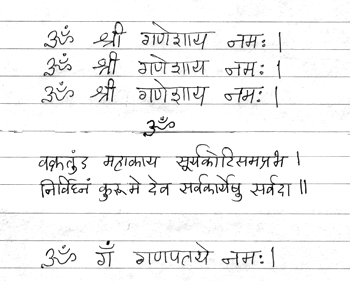 ॐ श्री गणेशाय नमः।
ॐ श्री गणेशाय नमः।
ॐ श्री गणेशाय नमः।
ॐ
वक्रतुंड महाकाय सूर्यकोटिसमप्रभ।
निर्विघ्नं कुरू मे देव सर्वकार्येषु सर्वदा॥
ॐ गँ गणपतये नमः।